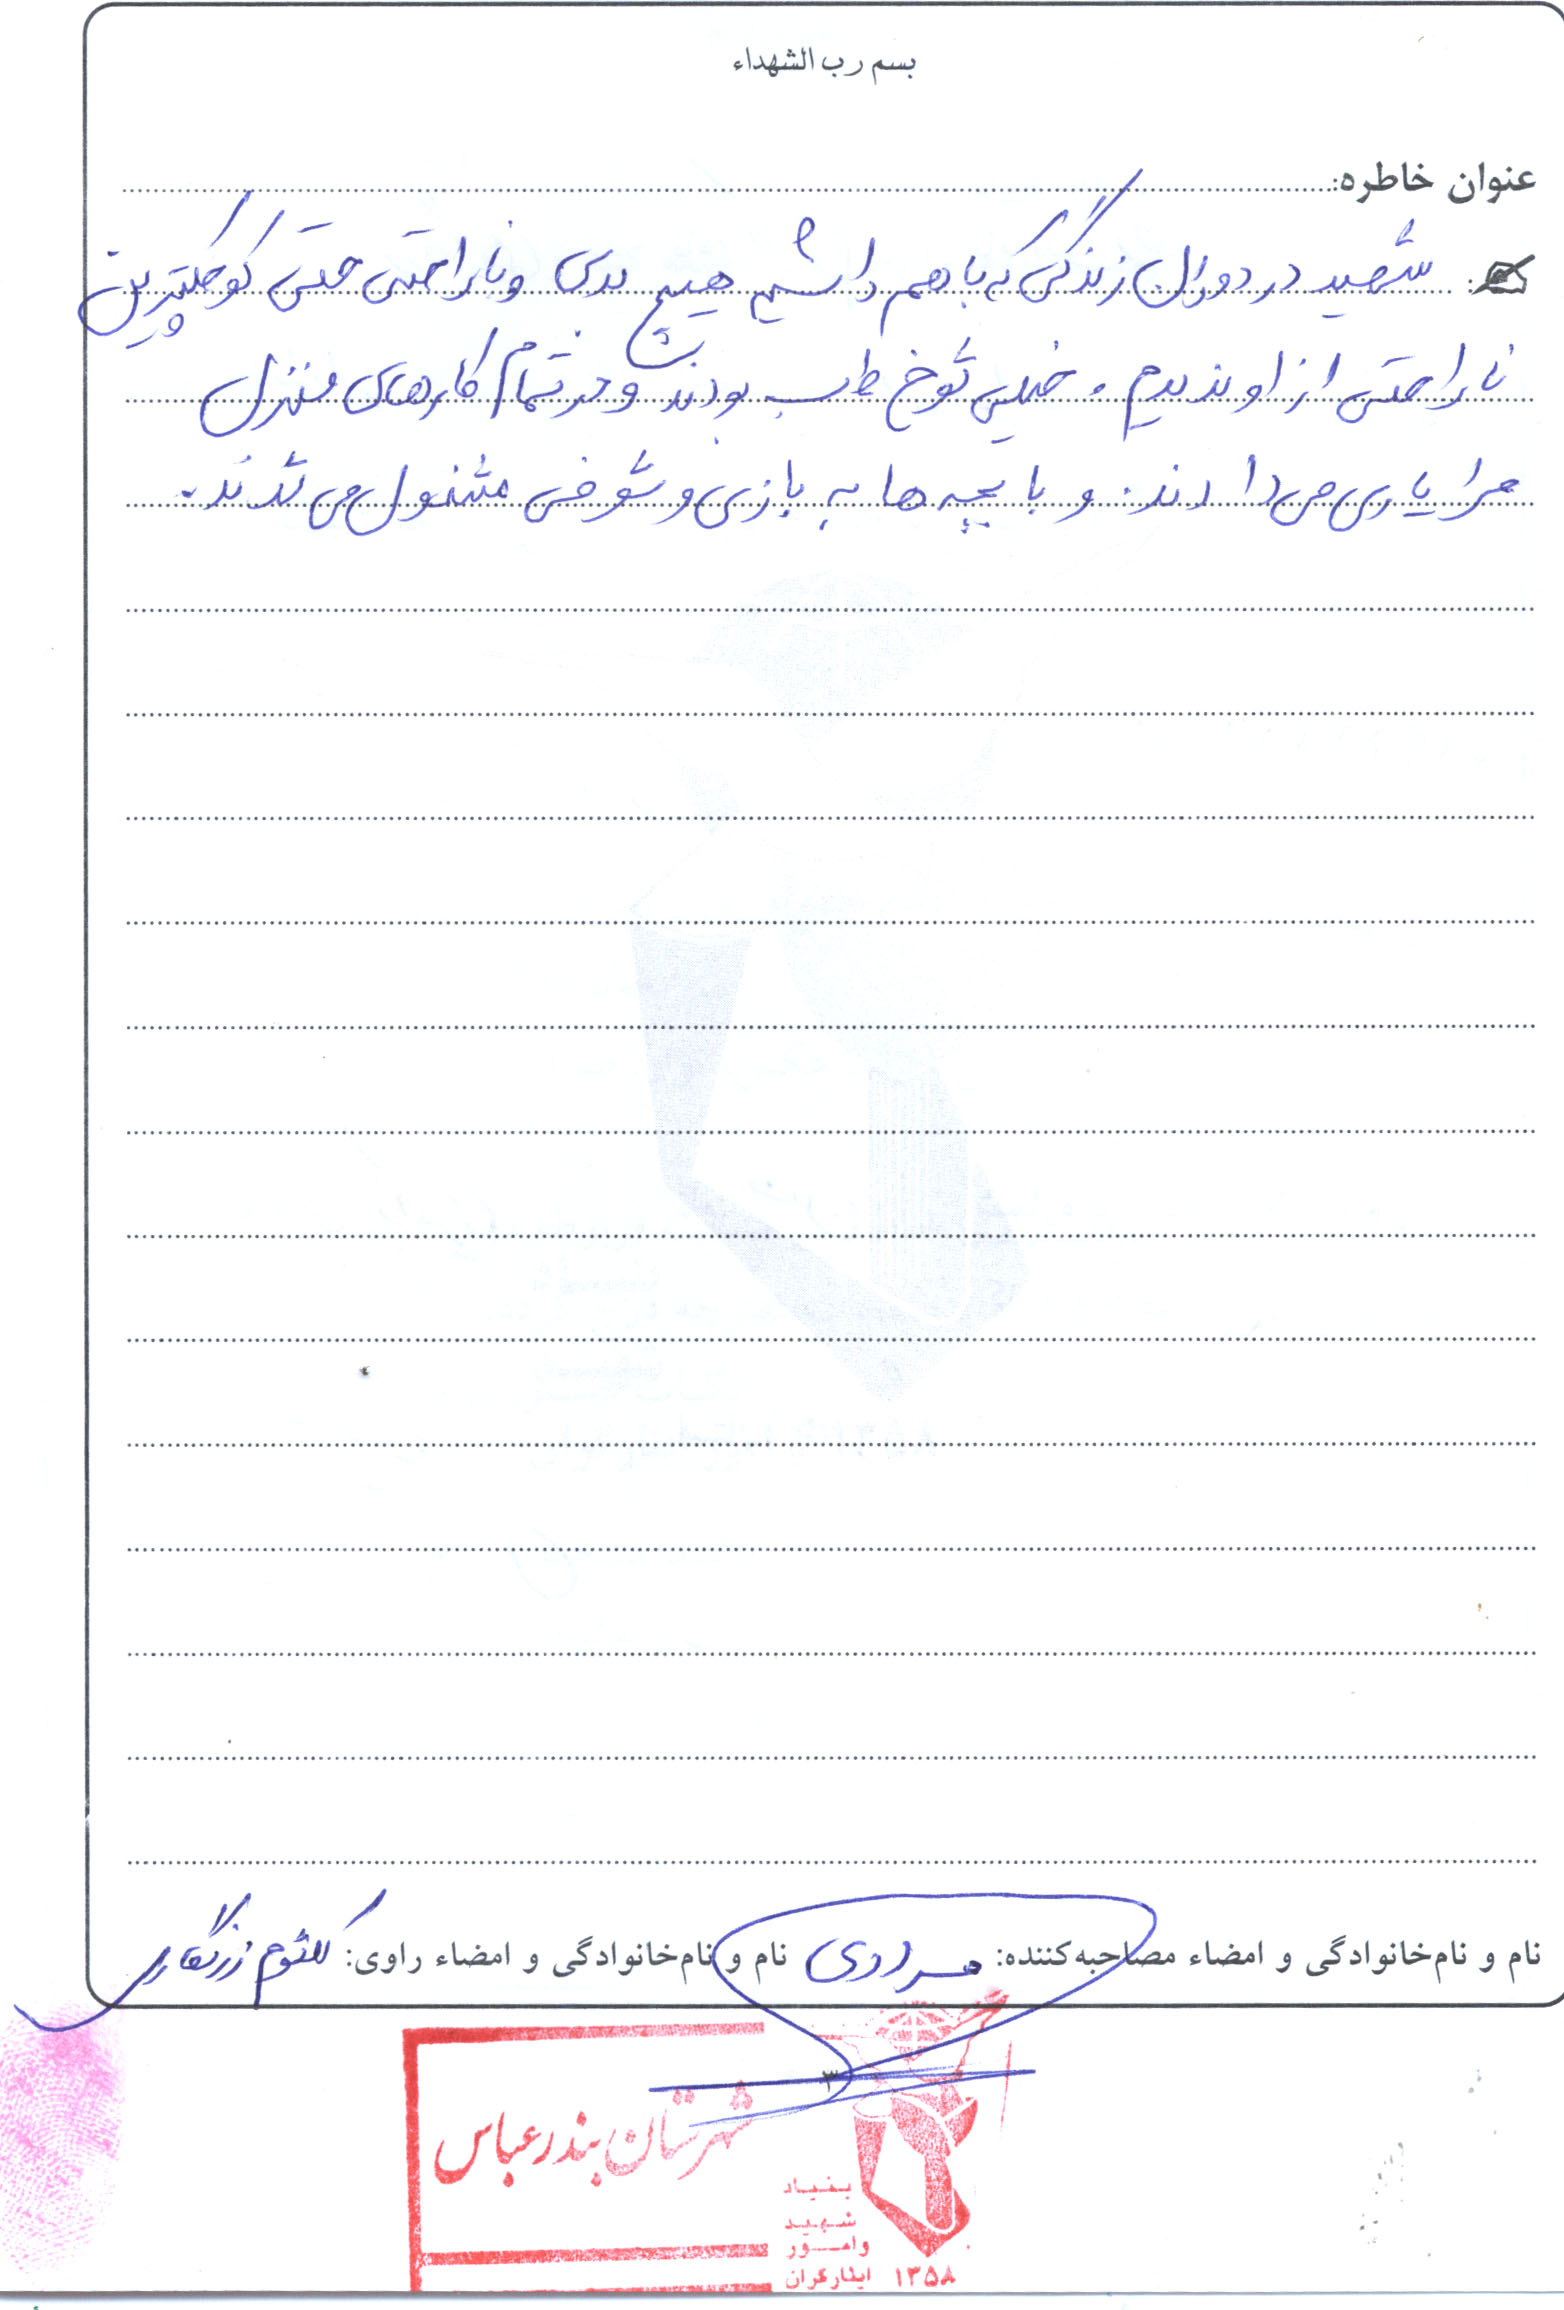 بسم رب الشهداء
عنوان خاطره:
شهید در دوران زندگی که با هم داشتیم هیچ بدی و ناراحتی حتی کوچکترین
ناراحتی از او ندیدم. خیلی شوخ طب بودند و در تمام کارهای منزل
مرا یاری می دادند. و با بچه ها به بازی و شوخی مشغول می شدند.
نام و نام‌خانوادگی و امضاء مصاحبه‌کننده: مرادی نام و نام‌خانوادگی و امضاء راوی: کلثوم زرنگاری
۳
شهرستان بندرعباس
بنیاد
شهید
وامور
ایثارگران ۱۳۵۸